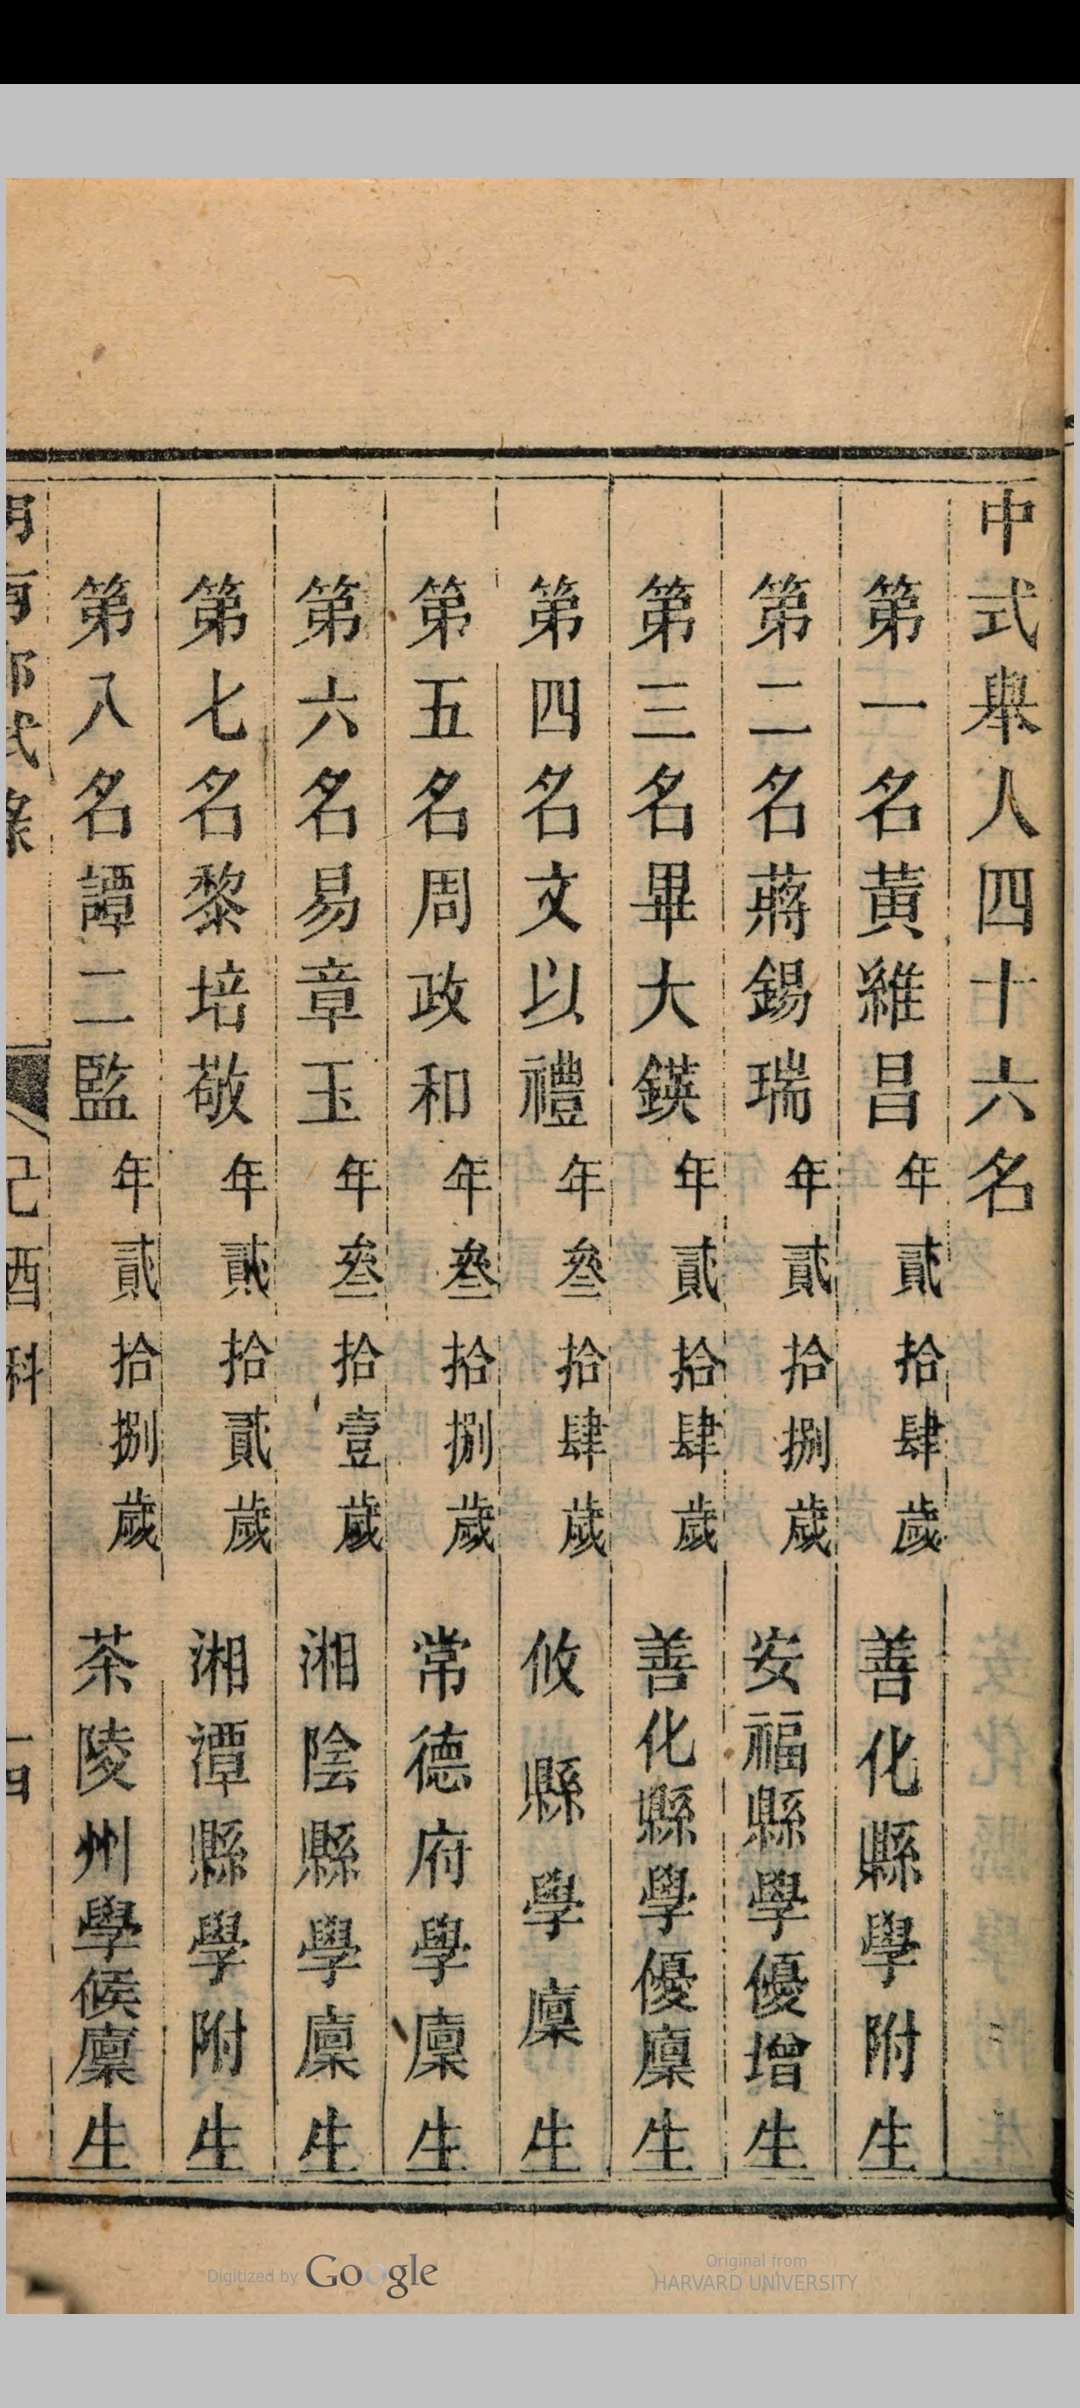 中式舉人四十六名
第一名黃維昌年貳拾肆歲善化縣學附生
第二名蔣錫瑞年貳拾捌歲安福縣學優增生
第三名畢大鍈年貳拾肆歲善化縣學優廩生
第四名文以禮年叄拾肆歲攸縣學廩生
第五名周政和年叄拾捌歲常德府學廩生
第六名易章玉年叄拾壹歲湘陰縣學廩生
第七名黎培敬年貳拾貳歲湘潭縣學附生
第八名譚二監年貳拾捌歲茶陵州學候廩生
南鄉試錄
己酉科
Digitized by Google
Original from
HARVARD UNIVERSITY